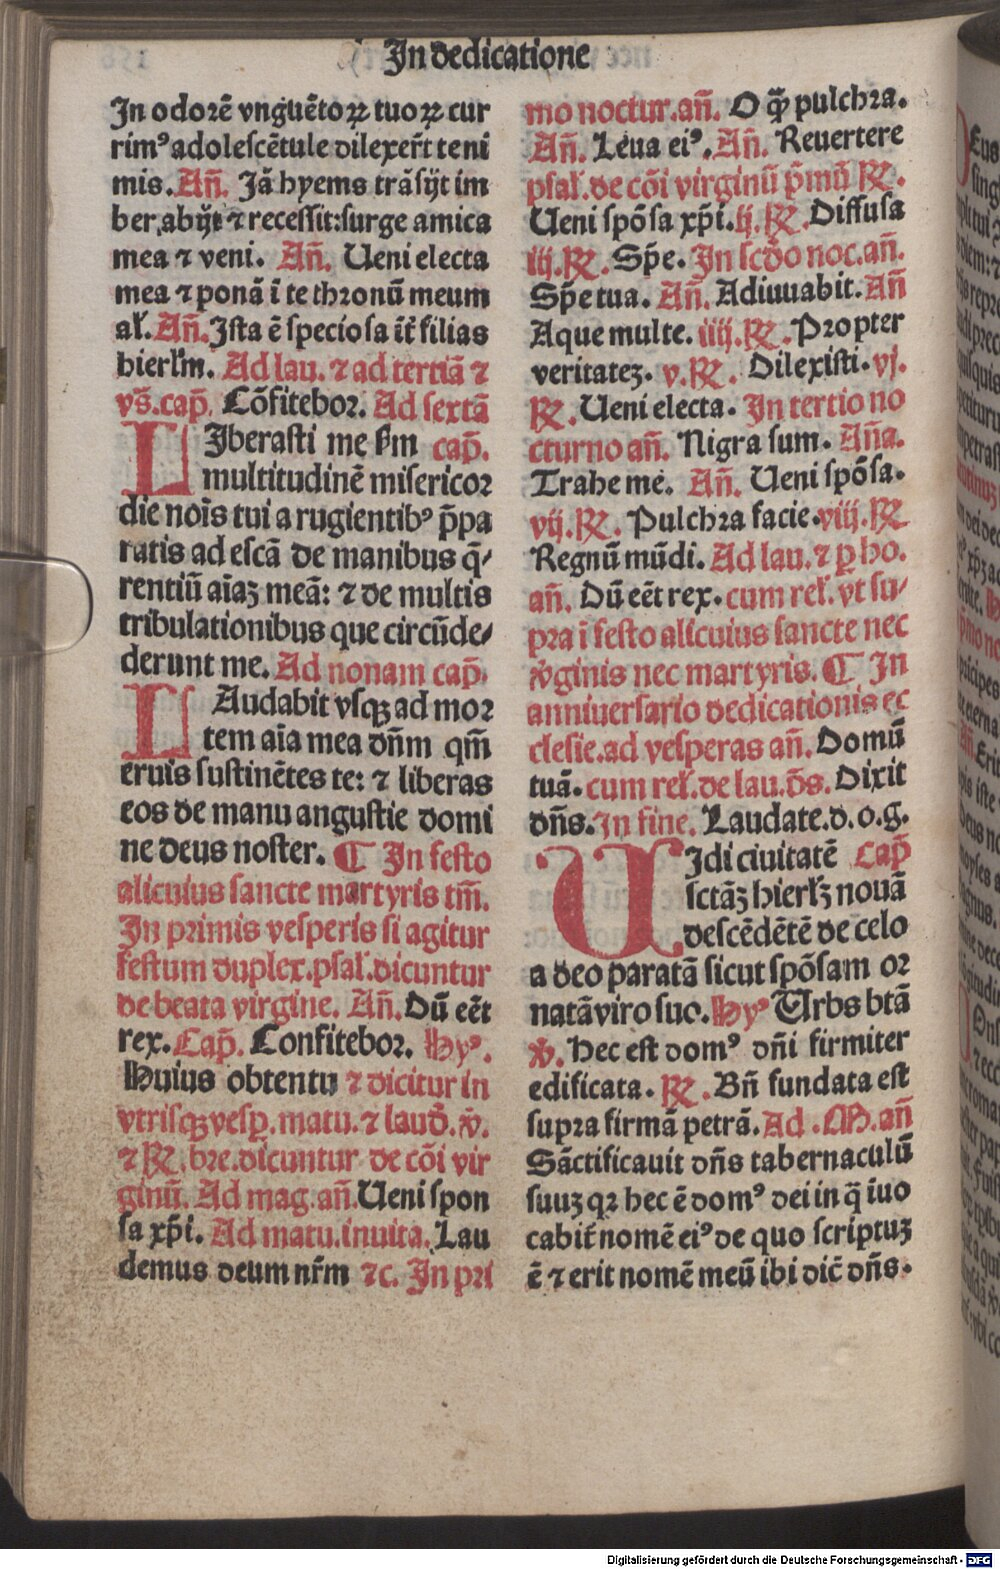 In dedicatione
In odorē vngnētoꝝ tuoꝝ cur
rimꝰ adolescētule dilexer̄t te ni
mis. Añ. Jā hyems trāsijt im
ber abijt ⁊ recessit: surge amica
mea ⁊ veni. Añ. Ueni electa
mea ⁊ ponā ī te thronū meum
al̄. Añ. Ista ē speciosa īt̄ filias
hierl̄m. Ad lau. ⁊ ad tertiā ⁊
vs̄. cap̄. Cōfitebor. Ad sextā
LIberasti me s̄m cap̄.
multitudinē misericor
die noīs tui a rugientibꝰ p̄pa
ratis ad escā de manibus q̄-
rentiū aīaꝫ meā: ⁊ de multis
tribulationibus que circūde-
derunt me. Ad nonam cap̄.
LAudabit vsqꝫ ad mor
tem aīa mea dn̄m qm̄
eruis sustinētes te: ⁊ liberas
eos de manu angustie domi
ne deus noster. ¶ In festo
alicuius sancte martyris tm̄.
In primis vesperis si agitur
festum duplex. psal̄. dicuntur
de beata virgine. Añ. Dū eēt
rex. Cap̄. Confitebor. Hyꝰ.
Huius obtentu ⁊ dicitur in
vtrisqꝫ vesp̄. matu. ⁊ laud̄. ꝟ.
⁊ ℞. bre. dicuntur de cōi vir
ginū. Ad mag. añ. Ueni spon
sa xp̄i. Ad matu. inuita. Lau
demus deum nr̄m ⁊c. In pri
mo noctur. añ. O q̄ꝫ pulchra.
Añ. Leua eiꝰ. Añ. Reuertere
psal̄. de cōi virginū p̄mū ℞.
Ueni spōsa xp̄i. ij. ℞. Diffusa
iij. ℞. Sp̄e. In sc̄do noc. añ.
Sp̄e tua. Añ. Adiuuabit. Añ
Aque multe. iiij. ℞. Propter
veritateꝫ. v. ℞. Dilexisti. vj.
℞. Ueni electa. In tertio no
cturno añ. Nigra sum. Aña.
Trahe me. Añ. Ueni spōsa.
vij. ℞. Pulchra facie. viij. ℞
Regnū mūdi. Ad lau. ⁊ ꝑ ho.
añ. Dū eēt rex. cum rel̄. vt su-
pra ī festo alicuius sancte nec
ꝟginis nec martyris. ¶ In
anniuersario dedicationis ec
clesie. ad vesperas añ. Domū
tuā. cum rel̄. de lau. p̄s. Dixit
dn̄s. In fine. Laudate. d. o. g.
UIdi ciuitatē Cap̄
sctāꝫ hierl̄ꝫ nouā
descēdētē de celo
a deo paratā sicut spōsam or
natā viro suo. Hyꝰ Urbs btā
ꝟ. Hec est domꝰ dn̄i firmiter
edificata. ℞. Bn̄ fundata est
supra firmā petrā. Ad .M. añ
Sāctificauit dn̄s tabernaculū
suuꝫ qꝛ hec ē domꝰ dei in q̄ īuo
cabit̄ nomē eiꝰ de quo scriptuꝫ
ē ⁊ erit nomē meū ibi dic̄ dn̄s.
Digitalisierung gefördert durch die Deutsche Forschungsgemeinschaft - DFG